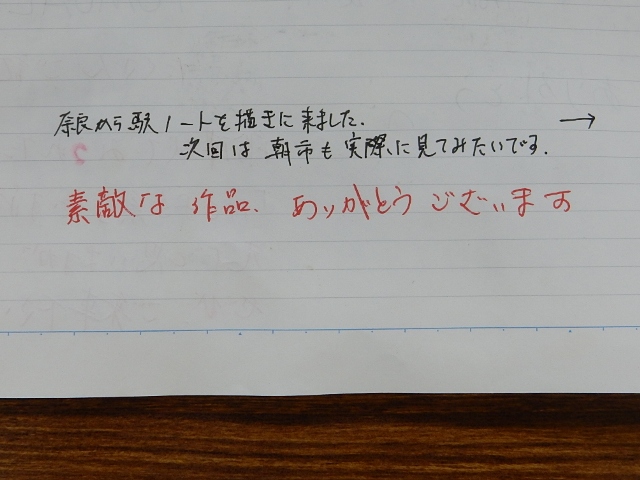 奈良から駅ノートを描きに来ました. →
次回は 朝市も実際に見てみたいです.
素敵な 作品、ありがとうございます